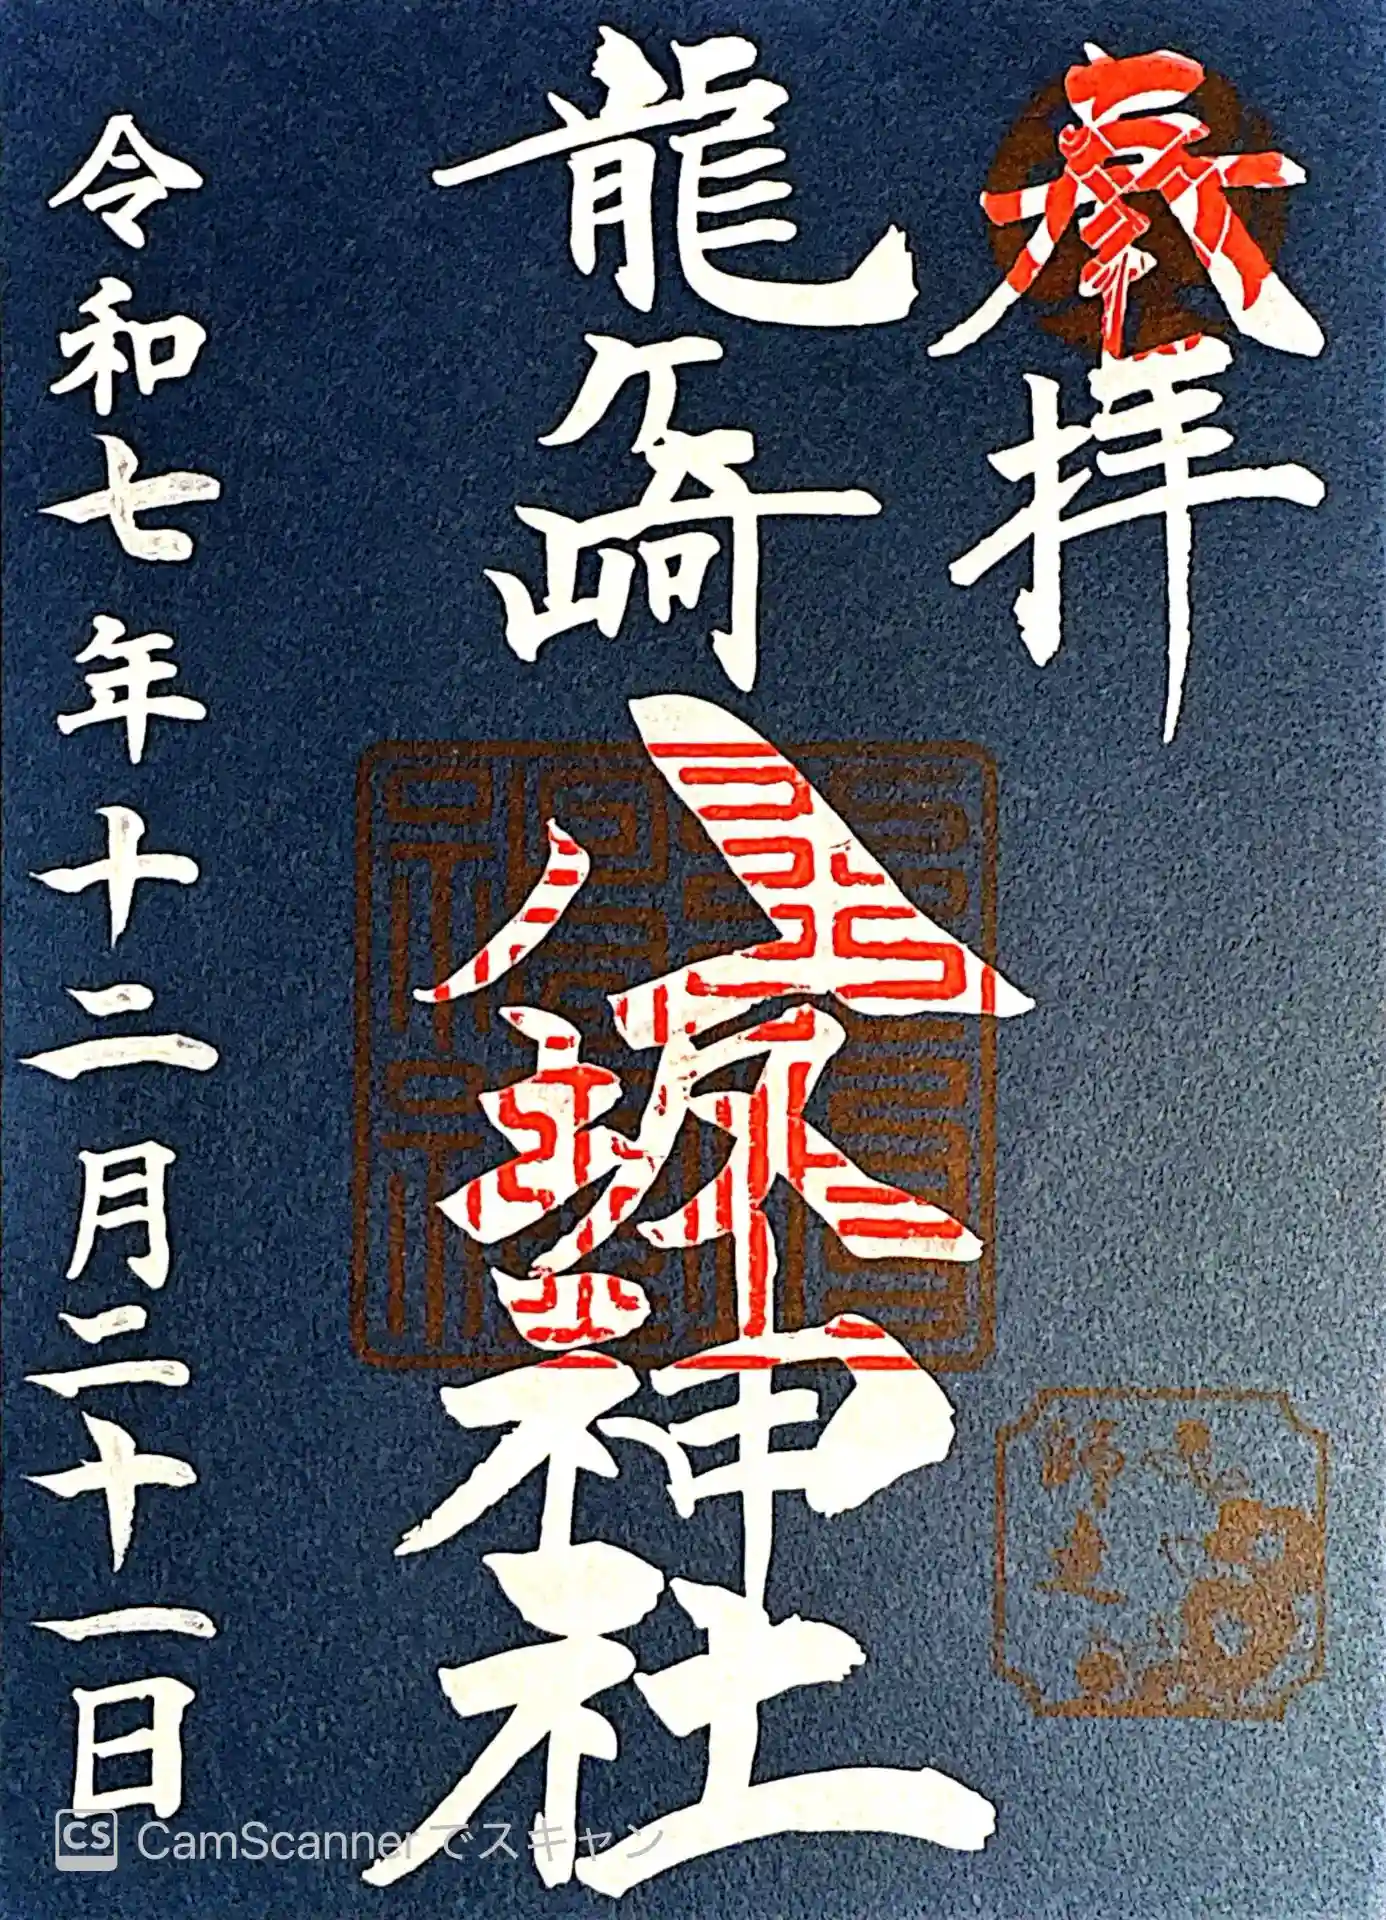 奉拝
龍ケ崎八坂神社
令和七年十二月二十一日
師走
CS CamScannerでスキャン